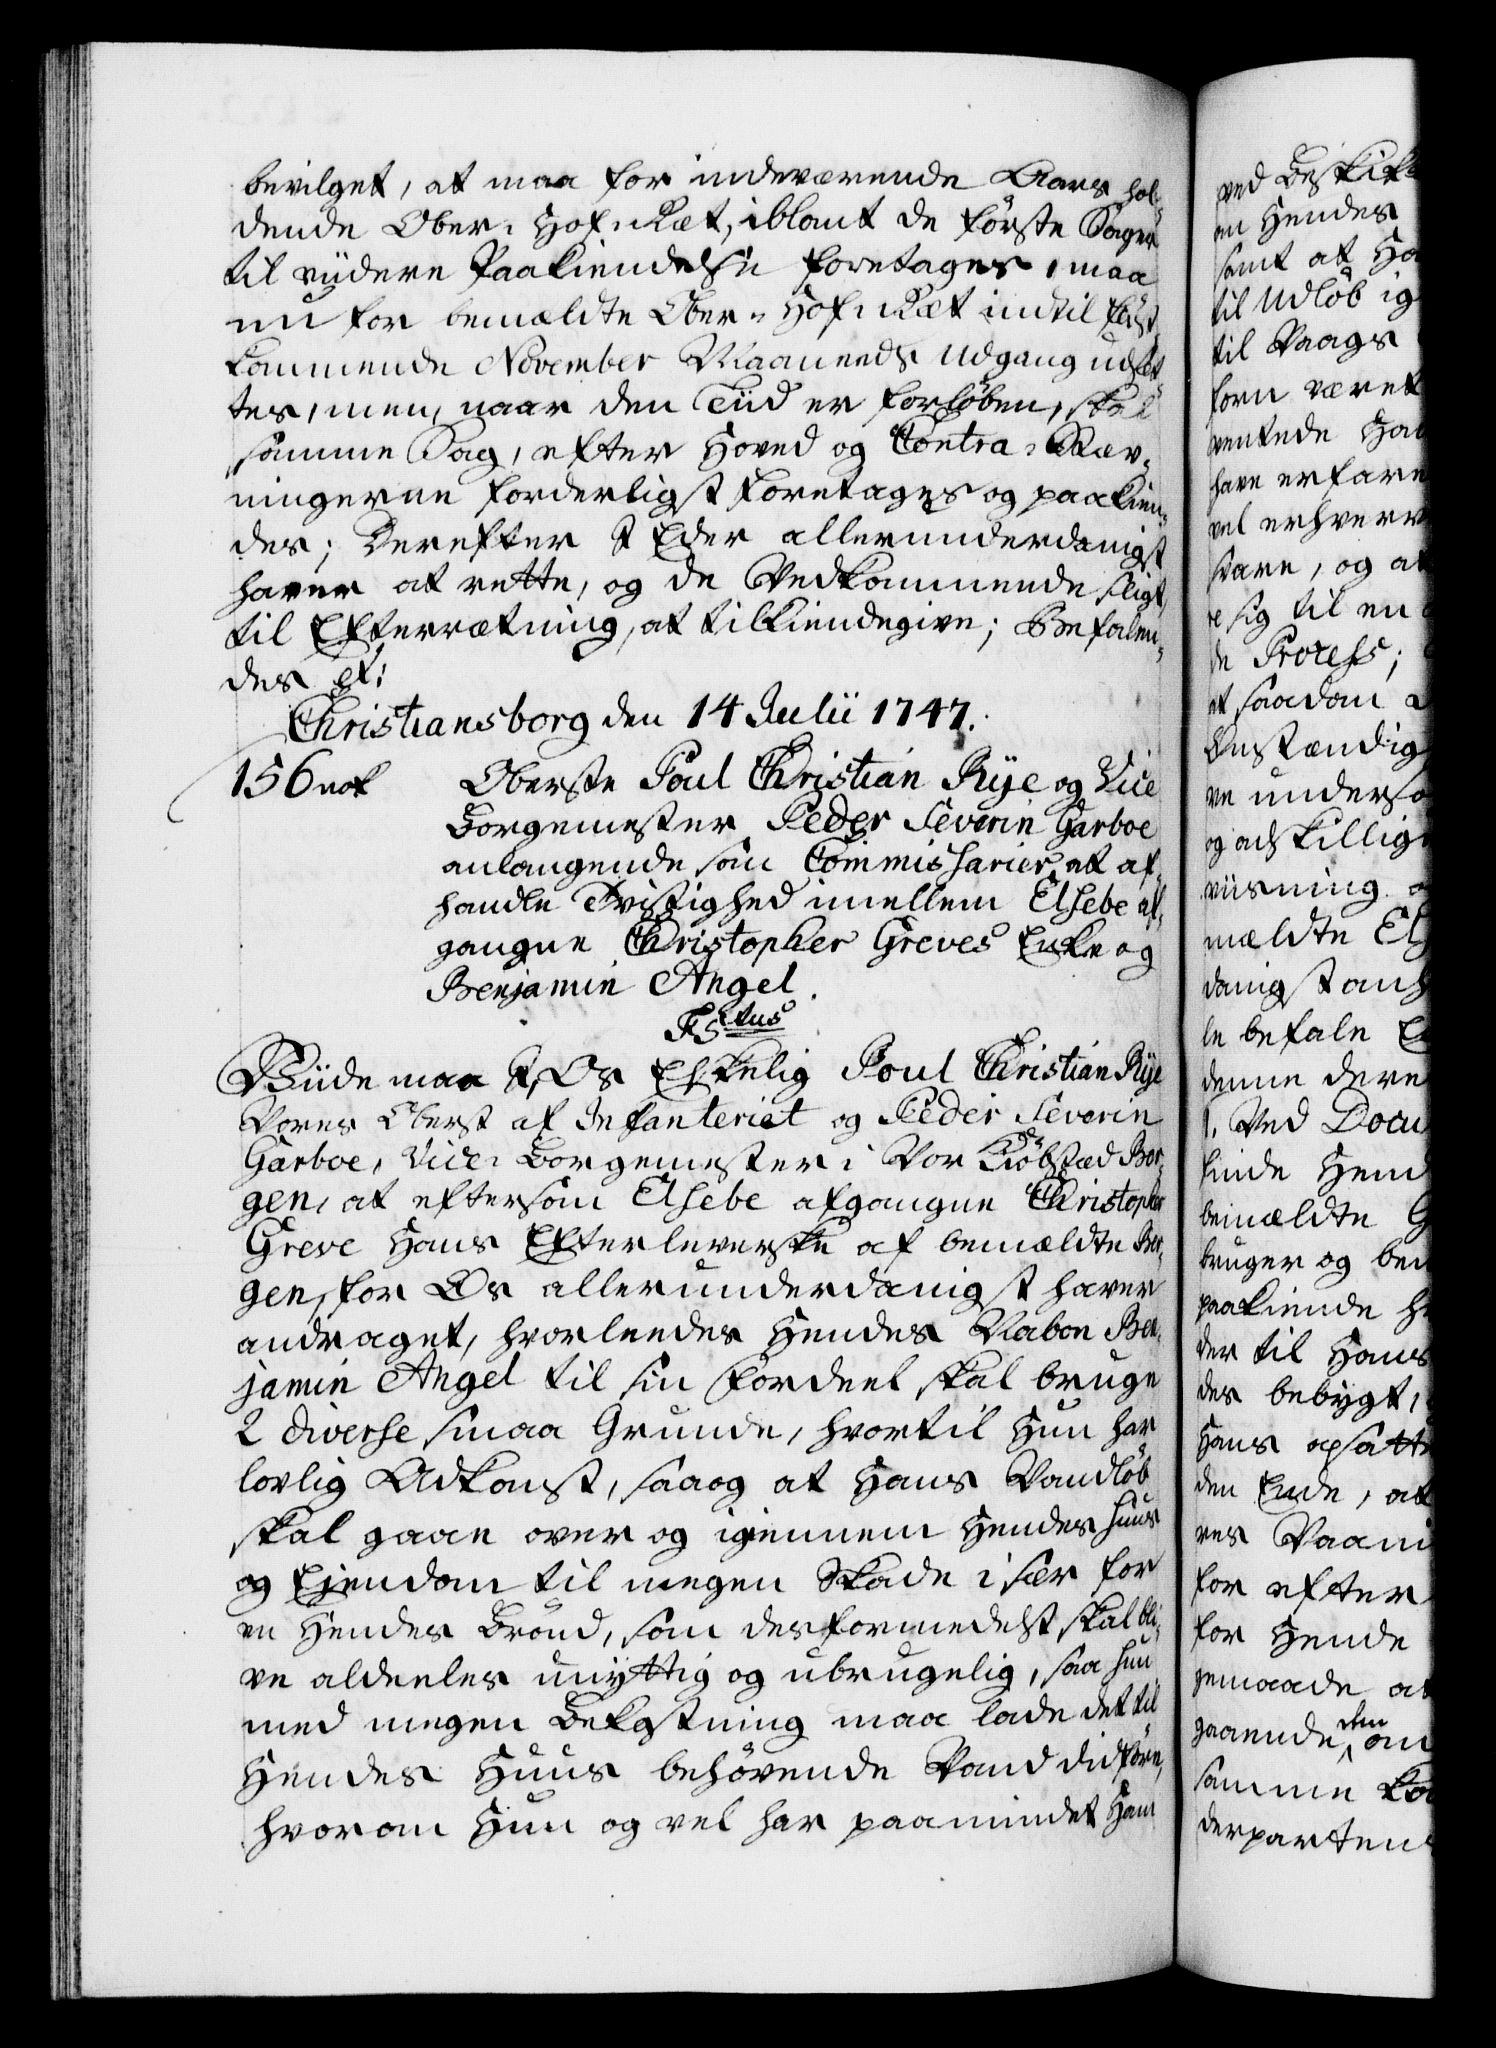 bevilget, at maa for indeværende Aars hol-
dende Ober-Hof-Ræt, iblant de første Sager
til viidere Paakiendelse foretages, maa
nu for bemældte Ober-Hof-Ræt indtil først-
kommende November Maaneds Udgang udsæt-
tes, men, naar den Tiid er forløben, skal
samme Sag, efter Hoved og Contra-Stæv-
ningerne forderligst foretages og paakien-
des; Derefter I Eder allerunderdanigst
haver at rette, og de Vedkommende sligt,
til Efterrætning, at tilkiendegive; Befalen-
des etc:
Christiansborg den 14 Julii 1747.
156 not
Oberste Poul Christian Rye og Vice
Borgemester Peder Severin Garboe
anlangende som Commissarier at af-
handle Tvistighed imellem Elsebe af-
gangne Christopher Greves Enke og
Benjamin Angel.
F5tus
Viide maa I, Os Elskelig Poul Christian Rye
Vores Oberst af Infanteriet og Peder Severin
Garboe, Vice-Borgemester i Vor Kiøbstad Ber-
gen, at eftersom Elsebe afgangne Christopher
Greve Hans Efterleverske af bemældte Ber-
gen, for Os allerunderdanigst haver
andraget, hvorleedes Hendes Naboe Ben-
jamin Angel til sin Fordeel skal bruge
2 diverse smaa Grunde, hvortil Hun har
lovlig Adkomst, saa og at Hans Vandløb
skal gaae over og igiennem Hendes Huus
og Ejendom til megen Skade især for
en Hendes Brønd, som desformedelst skal bli-
ve aldeeles unyttig og ubrugelig, saa hun
med megen Bekostning maa lade det til
Hendes Huus behøvende Vand didføre,
hvorom Hun og vel har paamindet Ham
ved Beskik
en Hendes
samt at Ha
til Udløb ig
til Vaags
forn været
ventede Hav
have erfare
vel erhverv
svare, og at
re sig til en
de Process;
at saadan
Omstændig
ve underso
og adskillig
viisning
mældte El
danigst anh
le befale E
denne dere
1. Ved Docu
finde Hend
bemældte G
bruger og ben
paakiende h
der til Hans
des bebygt,
Hans opsatte
den Ende, at
res Vaani
for efter
for Hende
gemaade at
gaaende dem om
samme ko
derpartens